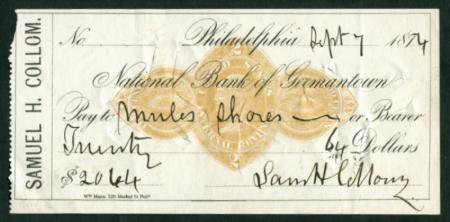 SAMUEL H. COLLOM.
No. Philadelphia Sept 7 1874
National Bank of Germantown
Pay to mules shores or Bearer
Twenty 64 Dollars
$ 20 64 Sam H Collom
Wm Mann, 529 Market St. Phila
2
2